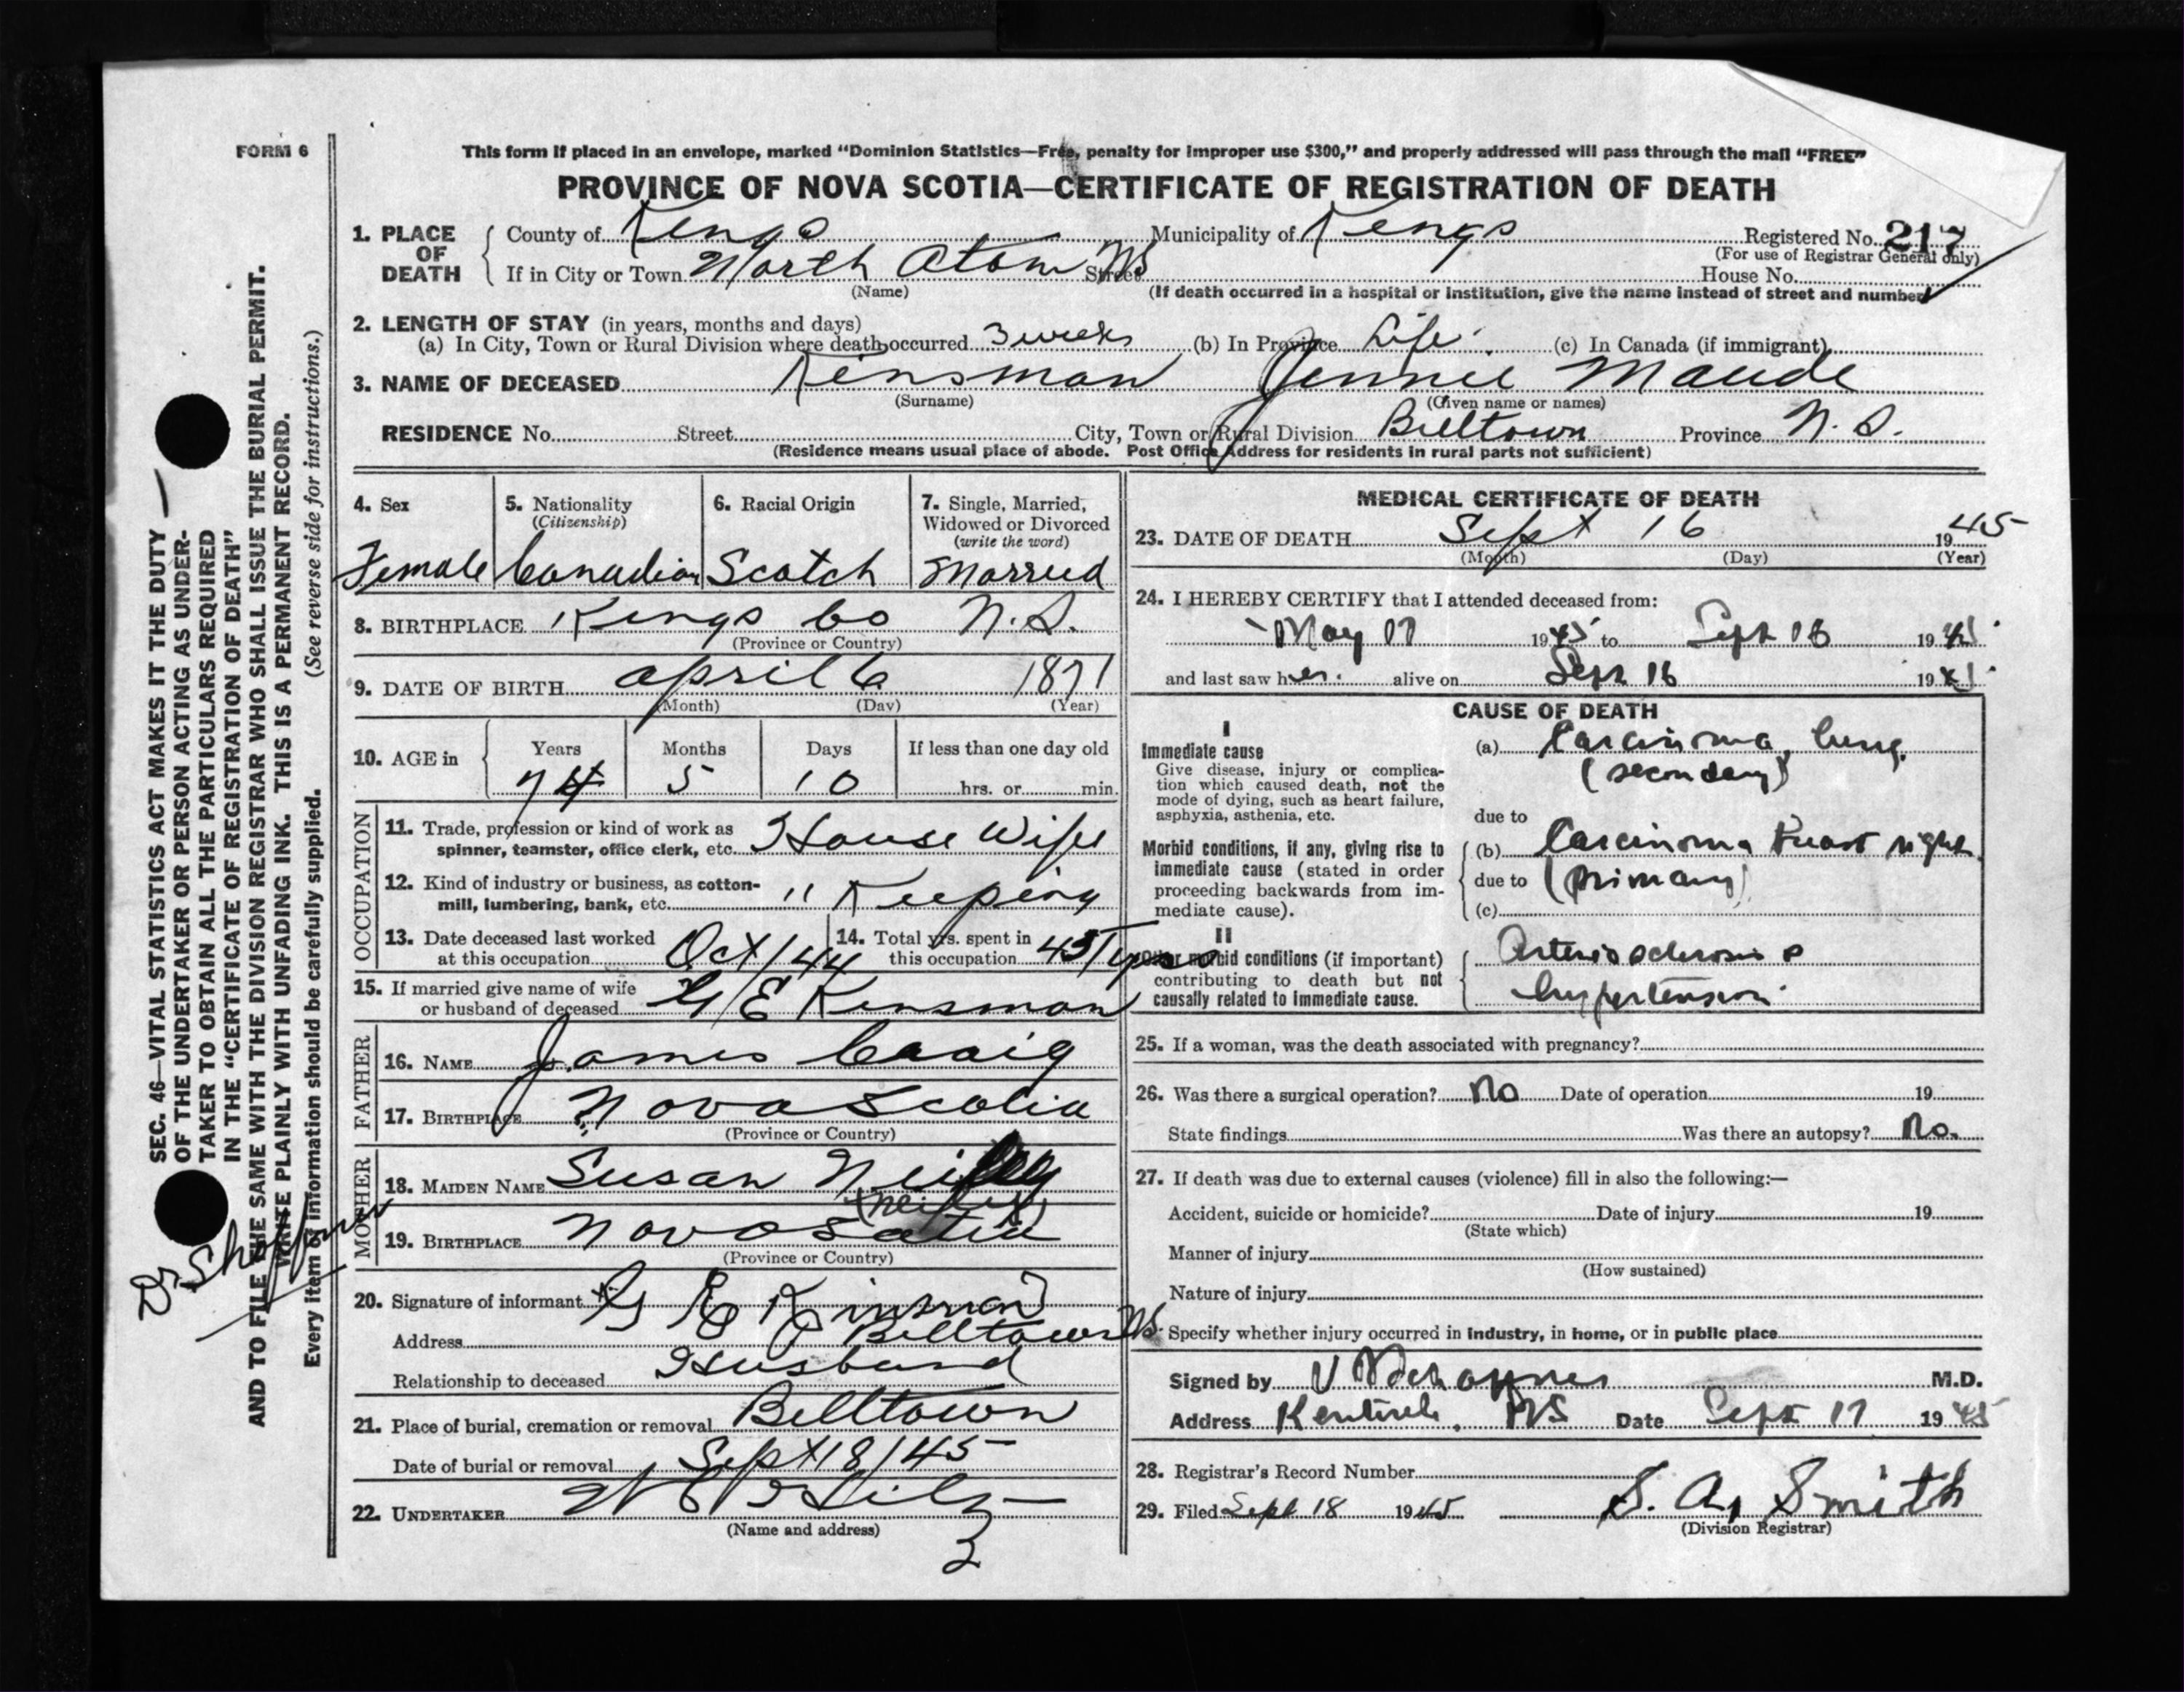 FORM 6
This form if placed in an envelope, marked "Dominion Statistics—Free, penalty for improper use $300," and properly addressed will pass through the mail "FREE"
PROVINCE OF NOVA SCOTIA—CERTIFICATE OF REGISTRATION OF DEATH
1. PLACE OF DEATH
County of Kings Municipality of Kings Registered No. 217
(For use of Registrar General only)
If in City or Town North Atom NS Street House No.
(Name) (If death occurred in a hospital or institution, give the name instead of street and number)
2. LENGTH OF STAY (in years, months and days)
(a) In City, Town or Rural Division where death occurred 3 weeks (b) In Province Life (c) In Canada (if immigrant)
3. NAME OF DECEASED Kinsman Jennie Maude
(Surname) (Given name or names)
RESIDENCE No. Street City, Town or Rural Division Billtown Province N. S.
(Residence means usual place of abode. Post Office Address for residents in rural parts not sufficient)
4. Sex 5. Nationality 6. Racial Origin 7. Single, Married,
(Citizenship) Widowed or Divorced
(write the word)
Female Canadian Scotch Married
8. BIRTHPLACE Kings Co N.S.
(Province or Country)
9. DATE OF BIRTH April 6 1871
(Month) (Day) (Year)
10. AGE in Years Months Days If less than one day old
74 5 10 hrs. or min.
OCCUPATION
11. Trade, profession or kind of work as
spinner, teamster, office clerk, etc. House Wife
12. Kind of industry or business, as cotton-
mill, lumbering, bank, etc. " Keeping
13. Date deceased last worked 14. Total yrs. spent in
at this occupation Oct/44 this occupation 45 yrs
15. If married give name of wife
or husband of deceased G E Kinsman
FATHER
16. NAME James Craig
17. BIRTHPLACE Nova Scotia
(Province or Country)
MOTHER
18. MAIDEN NAME Susan
19. BIRTHPLACE Nova Scotia
(Province or Country)
20. Signature of informant G E Kinsman
Address Billtown NS.
Relationship to deceased Husband
21. Place of burial, cremation or removal Billtown
Date of burial or removal Sept 18/45
22. UNDERTAKER W E
(Name and address)
3
MEDICAL CERTIFICATE OF DEATH
23. DATE OF DEATH Sept 16 1945
(Month) (Day) (Year)
24. I HEREBY CERTIFY that I attended deceased from:
May 17 1945 to Sept 16 1945
and last saw her alive on Sept 16 1945
CAUSE OF DEATH
I
Immediate cause
Give disease, injury or complica-
tion which caused death, not the
mode of dying, such as heart failure,
asphyxia, asthenia, etc.
(a) Carcinoma, lung.
(secondary)
due to
Morbid conditions, if any, giving rise to
immediate cause (stated in order
proceeding backwards from im-
mediate cause).
(b) Carcinoma breast right
due to (primary)
(c)
II
Other morbid conditions (if important)
contributing to death but not
causally related to immediate cause.
Arteriosclerosis
hypertension
25. If a woman, was the death associated with pregnancy?
26. Was there a surgical operation? No Date of operation 19
State findings Was there an autopsy? No.
27. If death was due to external causes (violence) fill in also the following:—
Accident, suicide or homicide? Date of injury 19
(State which)
Manner of injury
(How sustained)
Nature of injury
Specify whether injury occurred in industry, in home, or in public place
Signed by M.D.
Address Kentville, NS Date Sept 17 1945
28. Registrar's Record Number
29. Filed Sept 18 1945 S. A. Smith
(Division Registrar)
SEC. 46—VITAL STATISTICS ACT MAKES IT THE DUTY
OF THE UNDERTAKER OR PERSON ACTING AS UNDER-
TAKER TO OBTAIN ALL THE PARTICULARS REQUIRED
IN THE "CERTIFICATE OF REGISTRATION OF DEATH"
AND TO FILE THE SAME WITH THE DIVISION REGISTRAR WHO SHALL ISSUE THE BURIAL PERMIT.
WRITE PLAINLY WITH UNFADING INK. THIS IS A PERMANENT RECORD.
Every item of information should be carefully supplied. (See reverse side for instructions.)
Dr.